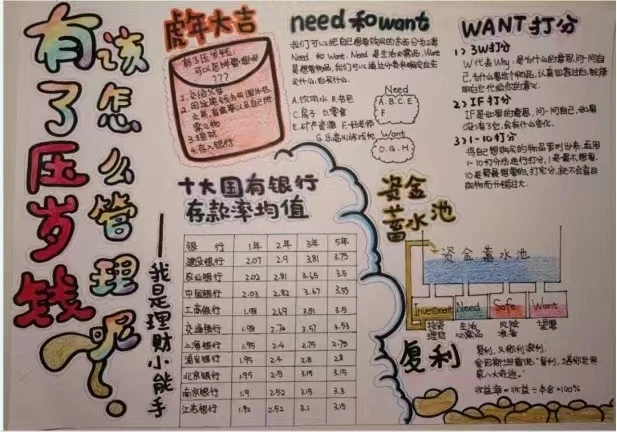 有了压岁钱
该怎么管理呢?
——我是理财小能手
虎年大吉
有了压岁钱,
可以怎样管理呢
???
1.交给父母
3.理财
4.存入银行
need和want
我们可以把自己想要购买的东西分为2类
Need 和 Want. Need 是生活必需品, Want
是想要物品,
买什么,
A.饮用水 B.书包
C.房子 D.零食
E.矿产资源 F.好老师
G.乐高 H.游戏机
Need
A.B.C.E
F
Want
D.G.H
WANT打分
1> 3W打分
W代表Why,是为什么的意思,问一问自
己,为什么要这个物品,
明白它给你的意义。
2> IF打分
IF是如果的意思,问一问自己,如果
没有它,会有什么变化。
3> 1-10打分
将自己想要购买的物品罗列出来,运用
1-10打分法进行打分,1是最不想要,
10是最最想要的,
十大国有银行
存款率均值
银行 1年 2年 3年 5年
建设银行 2.07 2.9 3.81 3.75
农业银行 2.02 2.81 3.65 3.5
中国银行 2.03 2.82 3.67 3.55
工商银行 1.98 2.69 3.51 3.5
交通银行 1.98 2.74 3.57 3.53
上海银行 1.95 2.4 2.75 2.75
浦发银行 1.95 2.4 2.8 2.8
北京银行 1.95 2.5 3.15 3.15
南京银行 1.9 2.52 3.15 3.3
江苏银行 1.92 2.52 3.1 3.15
资金
蓄水池
资金蓄水池
Investment Need Safe Want
投资理财 生活必需品 风险准备 愿望
复利
复利,又称利滚利,
爱因斯坦曾说:"复利,堪称世界
第八大奇迹。"
收益率=收益÷本金×100%